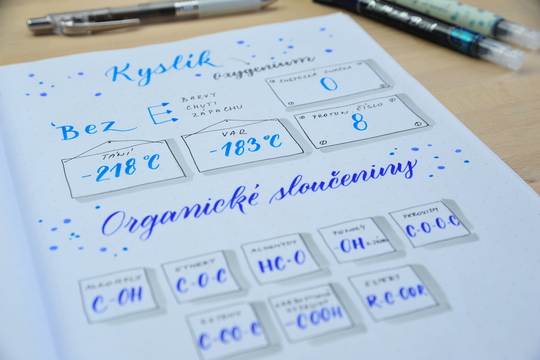 Kyslík
oxygenium
Bez
BARVY
CHUTI
ZÁPACHU
CHEMICKÁ ZNAČKA
O
PROTON. ČÍSLO
8
TÁNÍ
-218 °C
VAR
-183 °C
Organické sloučeniny
ALKOHOLY
C-OH
ETHERY
C-O-C
ALDEHYDY
HC-O
FENOLY
-OH
PEROXIDY
C-O-O-C
KETONY
C-CO-C
-COOH
ESTERY
R-C-OOR